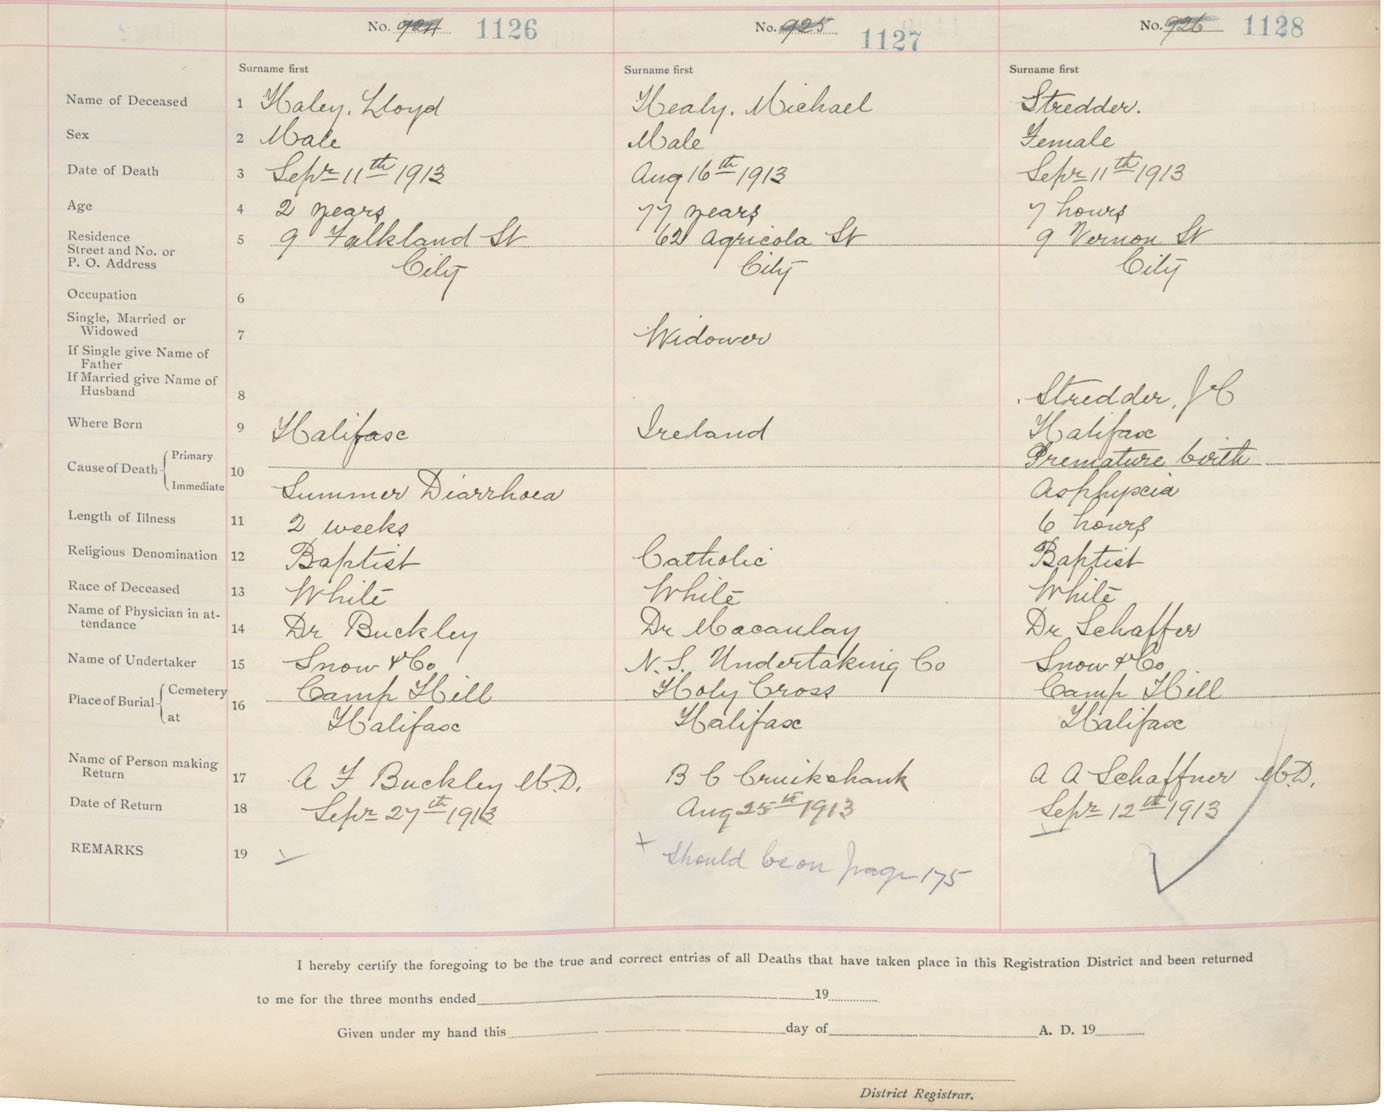 No. 924 1126 No. 925 1127 No. 926 1128
Surname first Surname first Surname first
Name of Deceased 1 Haley, Lloyd Healy, Michael Stredder.
Sex 2 Male Male Female
Date of Death 3 Sepr 11th 1913 Aug 16th 1913 Sepr 11th 1913
Age 4 2 years 77 years 7 hours
Residence
Street and No. or 5 9 Falkland St 62 Agricola St 9 Vernon St
P. O. Address City City City
Occupation 6
Single, Married or
Widowed 7 Widower
If Single give Name of
Father
If Married give Name of
Husband 8 Stredder, J C
Where Born 9 Halifax Ireland Halifax
Cause of Death Primary 10 Premature birth
Immediate Summer Diarrhoea Asphyxia
Length of Illness 11 2 weeks 6 hours
Religious Denomination 12 Baptist Catholic Baptist
Race of Deceased 13 White White White
Name of Physician in at-
tendance 14 Dr Buckley Dr Macaulay Dr Schaffer
Name of Undertaker 15 Snow & Co N.S. Undertaking Co Snow & Co
Place of Burial Cemetery 16 Camp Hill Holy Cross Camp Hill
at Halifax Halifax Halifax
Name of Person making
Return 17 A F Buckley M.D. B C Cruikshank A A Schaffner M.D.
Date of Return 18 Sepr 27th 1913 Aug 25th 1913 Sepr 12th 1913
REMARKS 19 should be on page 175
I hereby certify the foregoing to be the true and correct entries of all Deaths that have taken place in this Registration District and been returned
to me for the three months ended 19
Given under my hand this day of A. D. 19
District Registrar.